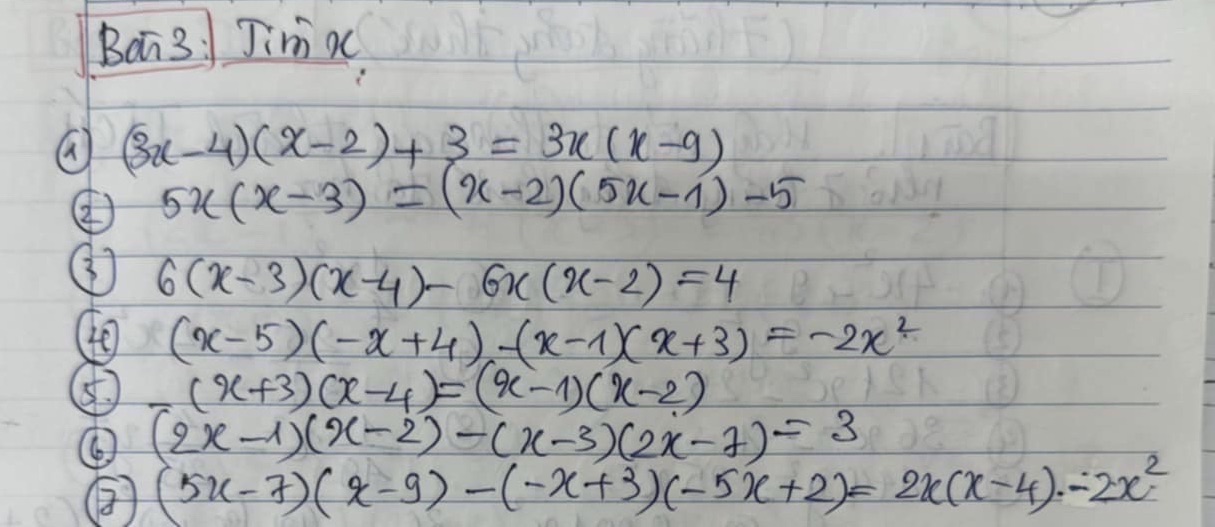 Bài 3: Tìm x
1) (3x-4)(x-2)+3 = 3x(x-9)
2) 5x(x-3) = (x-2)(5x-1)-5
3) 6(x-3)(x-4)- 6x(x-2)=4
4) (x-5)(-x+4)-(x-1)(x+3) = -2x²
5. (x+3)(x-4)=(x-1)(x-2)
6) (2x-1)(x-2)-(x-3)(2x-7)= 3
7) (5x-7)(x-9)-(-x+3)(-5x+2)= 2x(x-4).-2x²